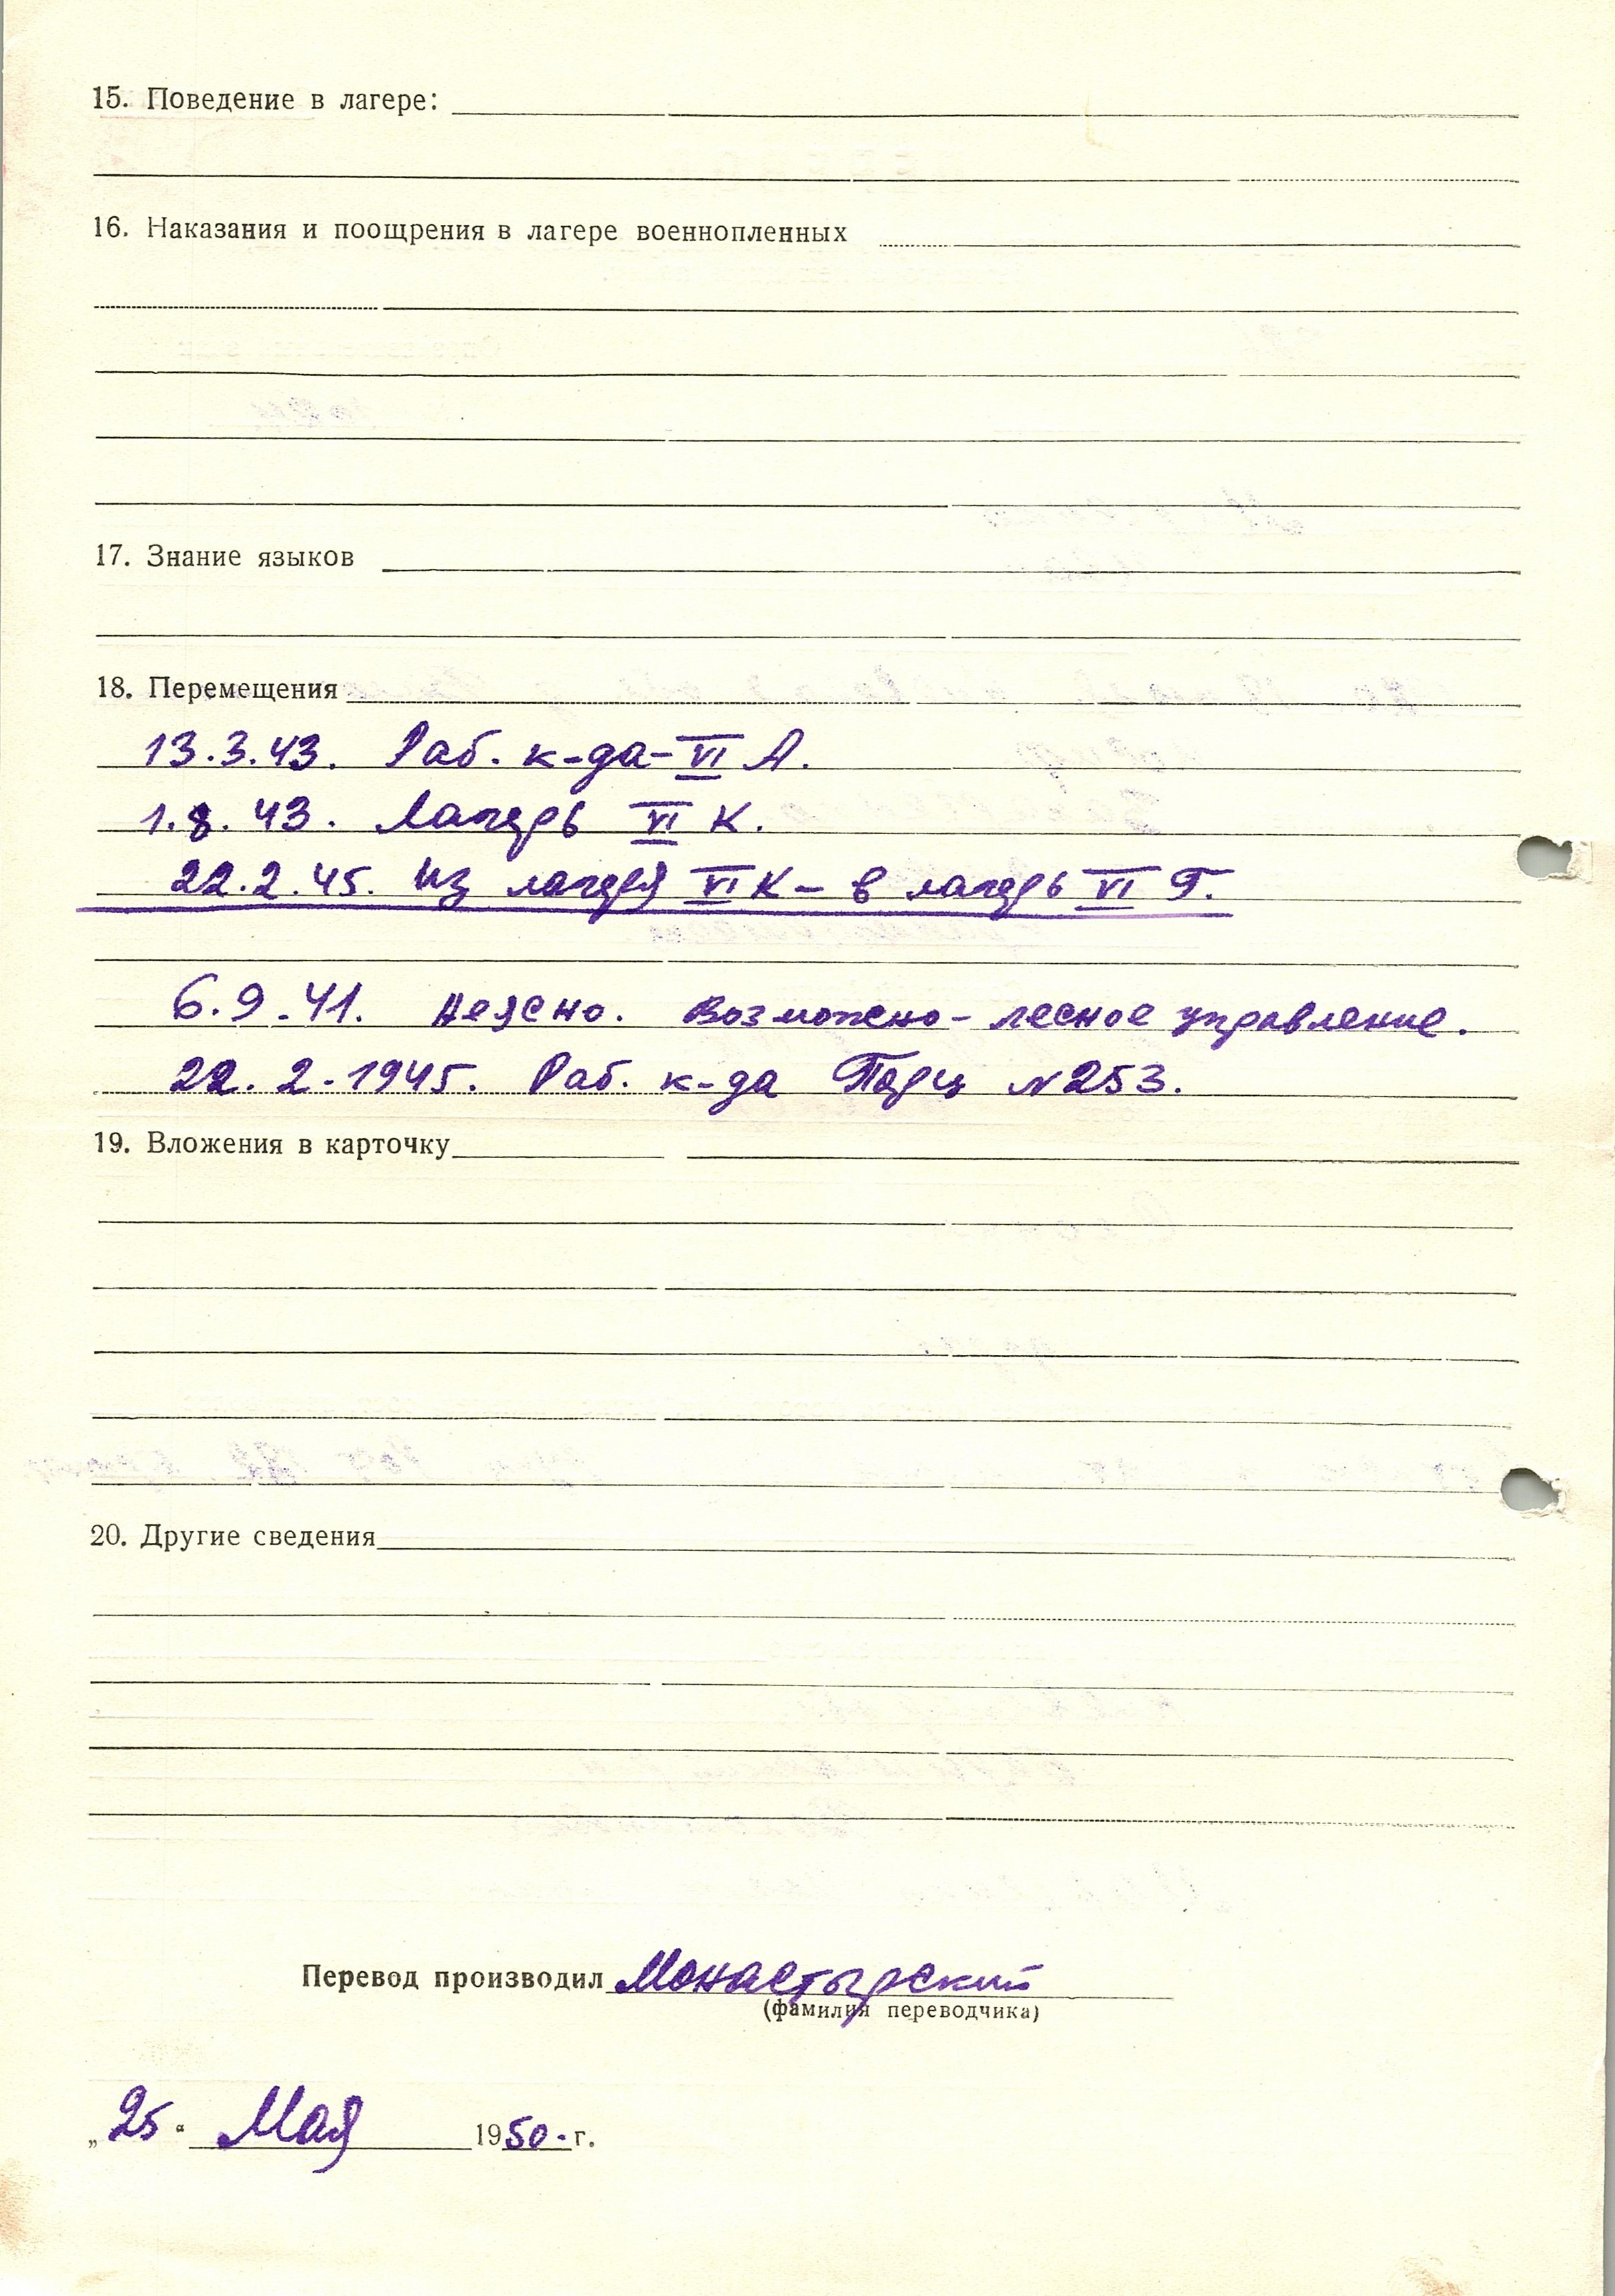 15. Поведение в лагере:
16. Наказания и поощрения в лагере военнопленных
17. Знание языков
18. Перемещения
13.3.43. Раб. к-да-VI А.
1.8.43. Лагерь VI К.
22.2.45. Из лагеря VI К - в лагерь VI Г.
6.9.41. Неясно. Возможно - лесное управление.
22.2.1945. Раб. к-да Порц N 253.
19. Вложения в карточку
20. Другие сведения
Перевод производил Монастырский
(фамилия переводчика)
„25“ Мая 1950 г.